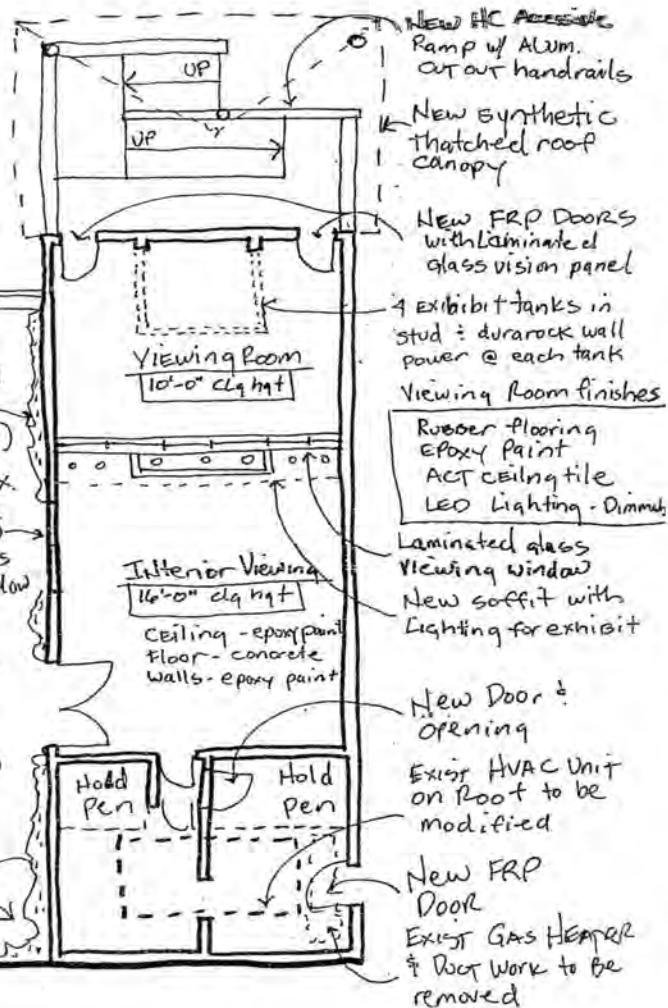 New HC Acessible
Ramp w/ Alum.
cut out handrails
UP
UP
New Synthetic
Thatched roof
canopy
New FRP Doors
with Laminated
glass vision panel
4 Exibibit tanks in
stud & durarock wall
power @ each tank
Viewing Room
10'-0" clg hgt
Viewing Room finishes
Rubber flooring
Epoxy Paint
ACT Ceilng tile
LED Lighting - Dimmab
Laminated glass
Viewing window
New soffit with
Lighting for exhibit
Interior Viewing
16'-0" clg hgt
Ceiling - epoxy paint
Floor - concrete
Walls - epoxy paint
New Door &
opening
Hold
Pen
Hold
Pen
Exist HVAC Unit
on Roof to be
modified
New FRP
Door
Exist Gas Heater
& Duct work to be
removed